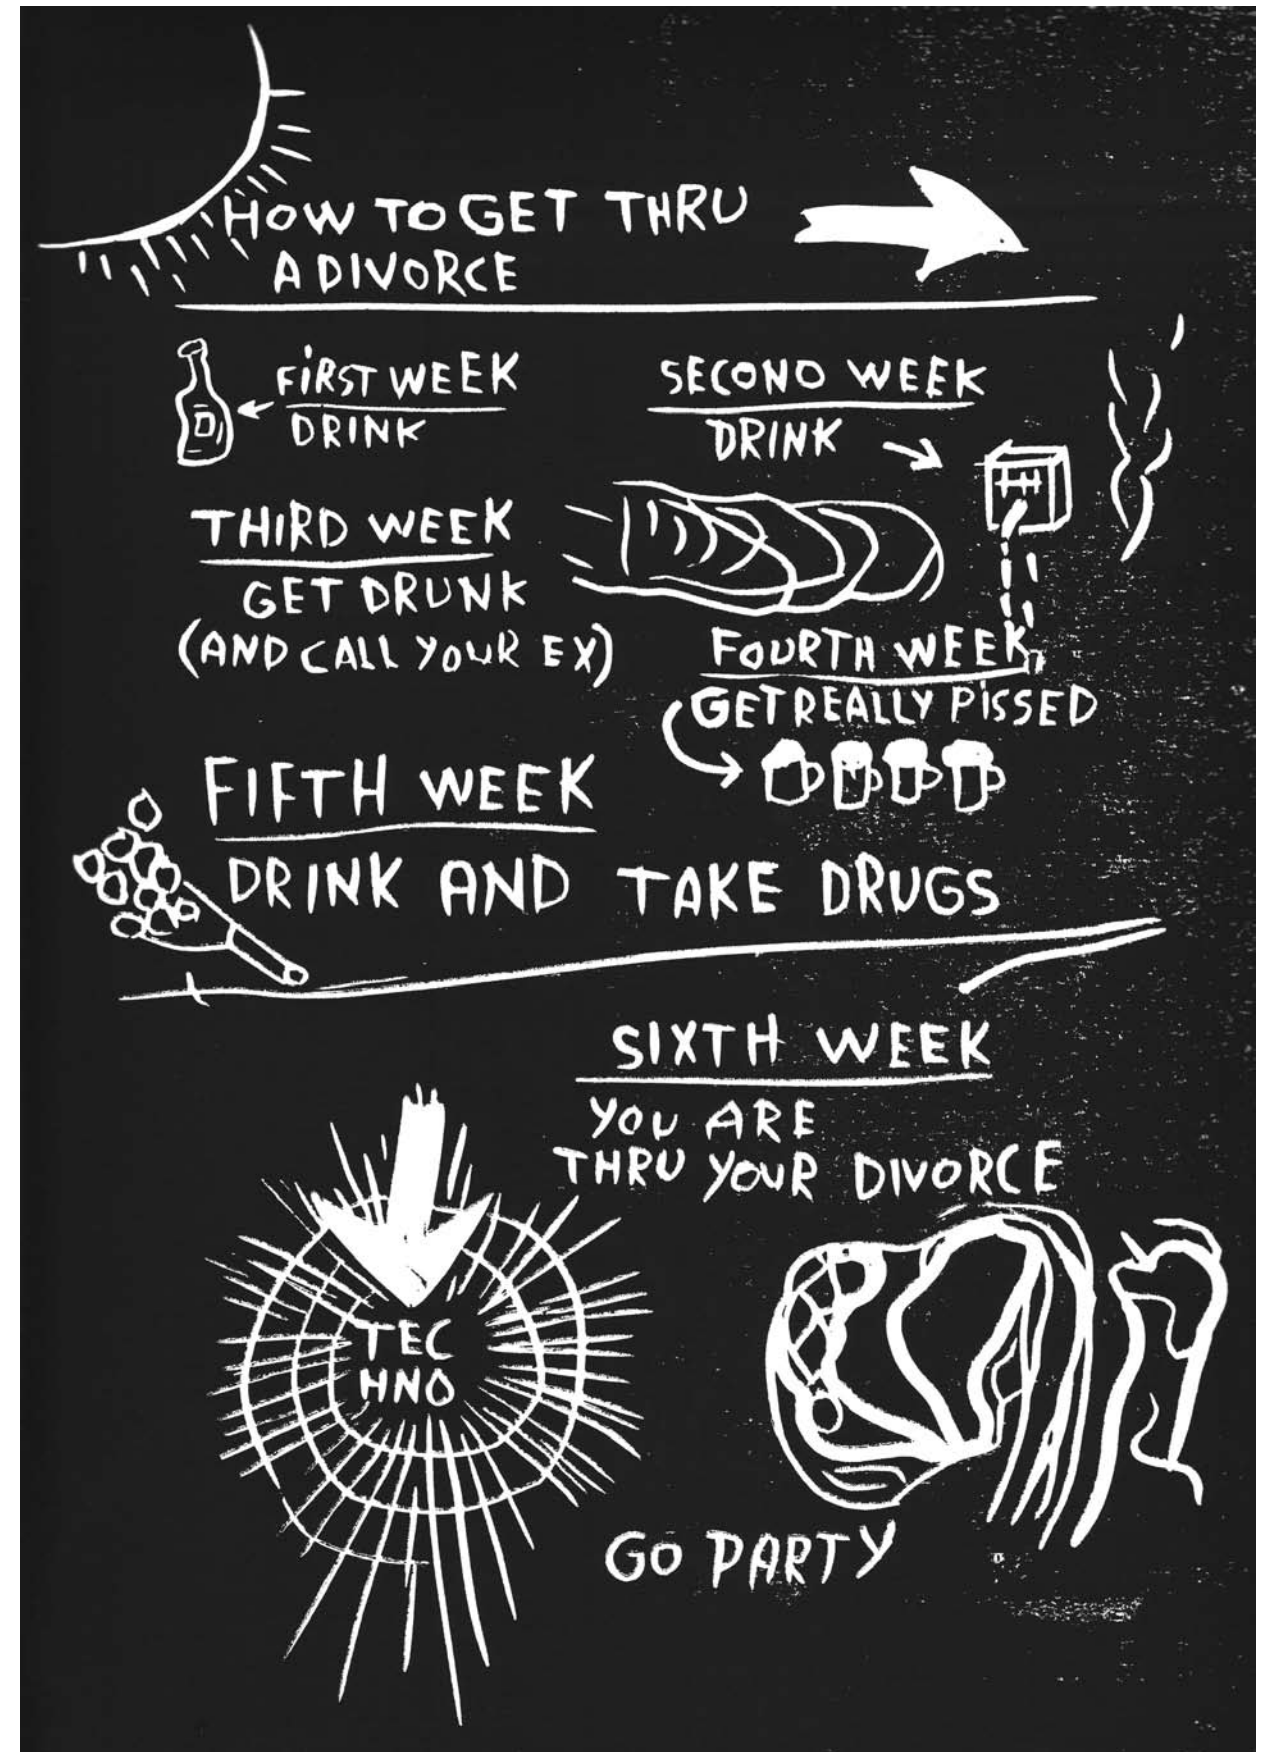 HOW TO GET THRU
A DIVORCE
FIRST WEEK
DRINK
SECOND WEEK
DRINK
THIRD WEEK
GET DRUNK
(AND CALL YOUR EX)
FOURTH WEEK
GET REALLY PISSED
FIFTH WEEK
DRINK AND TAKE DRUGS
SIXTH WEEK
YOU ARE
THRU YOUR DIVORCE
TEC
HNO
GO PARTY